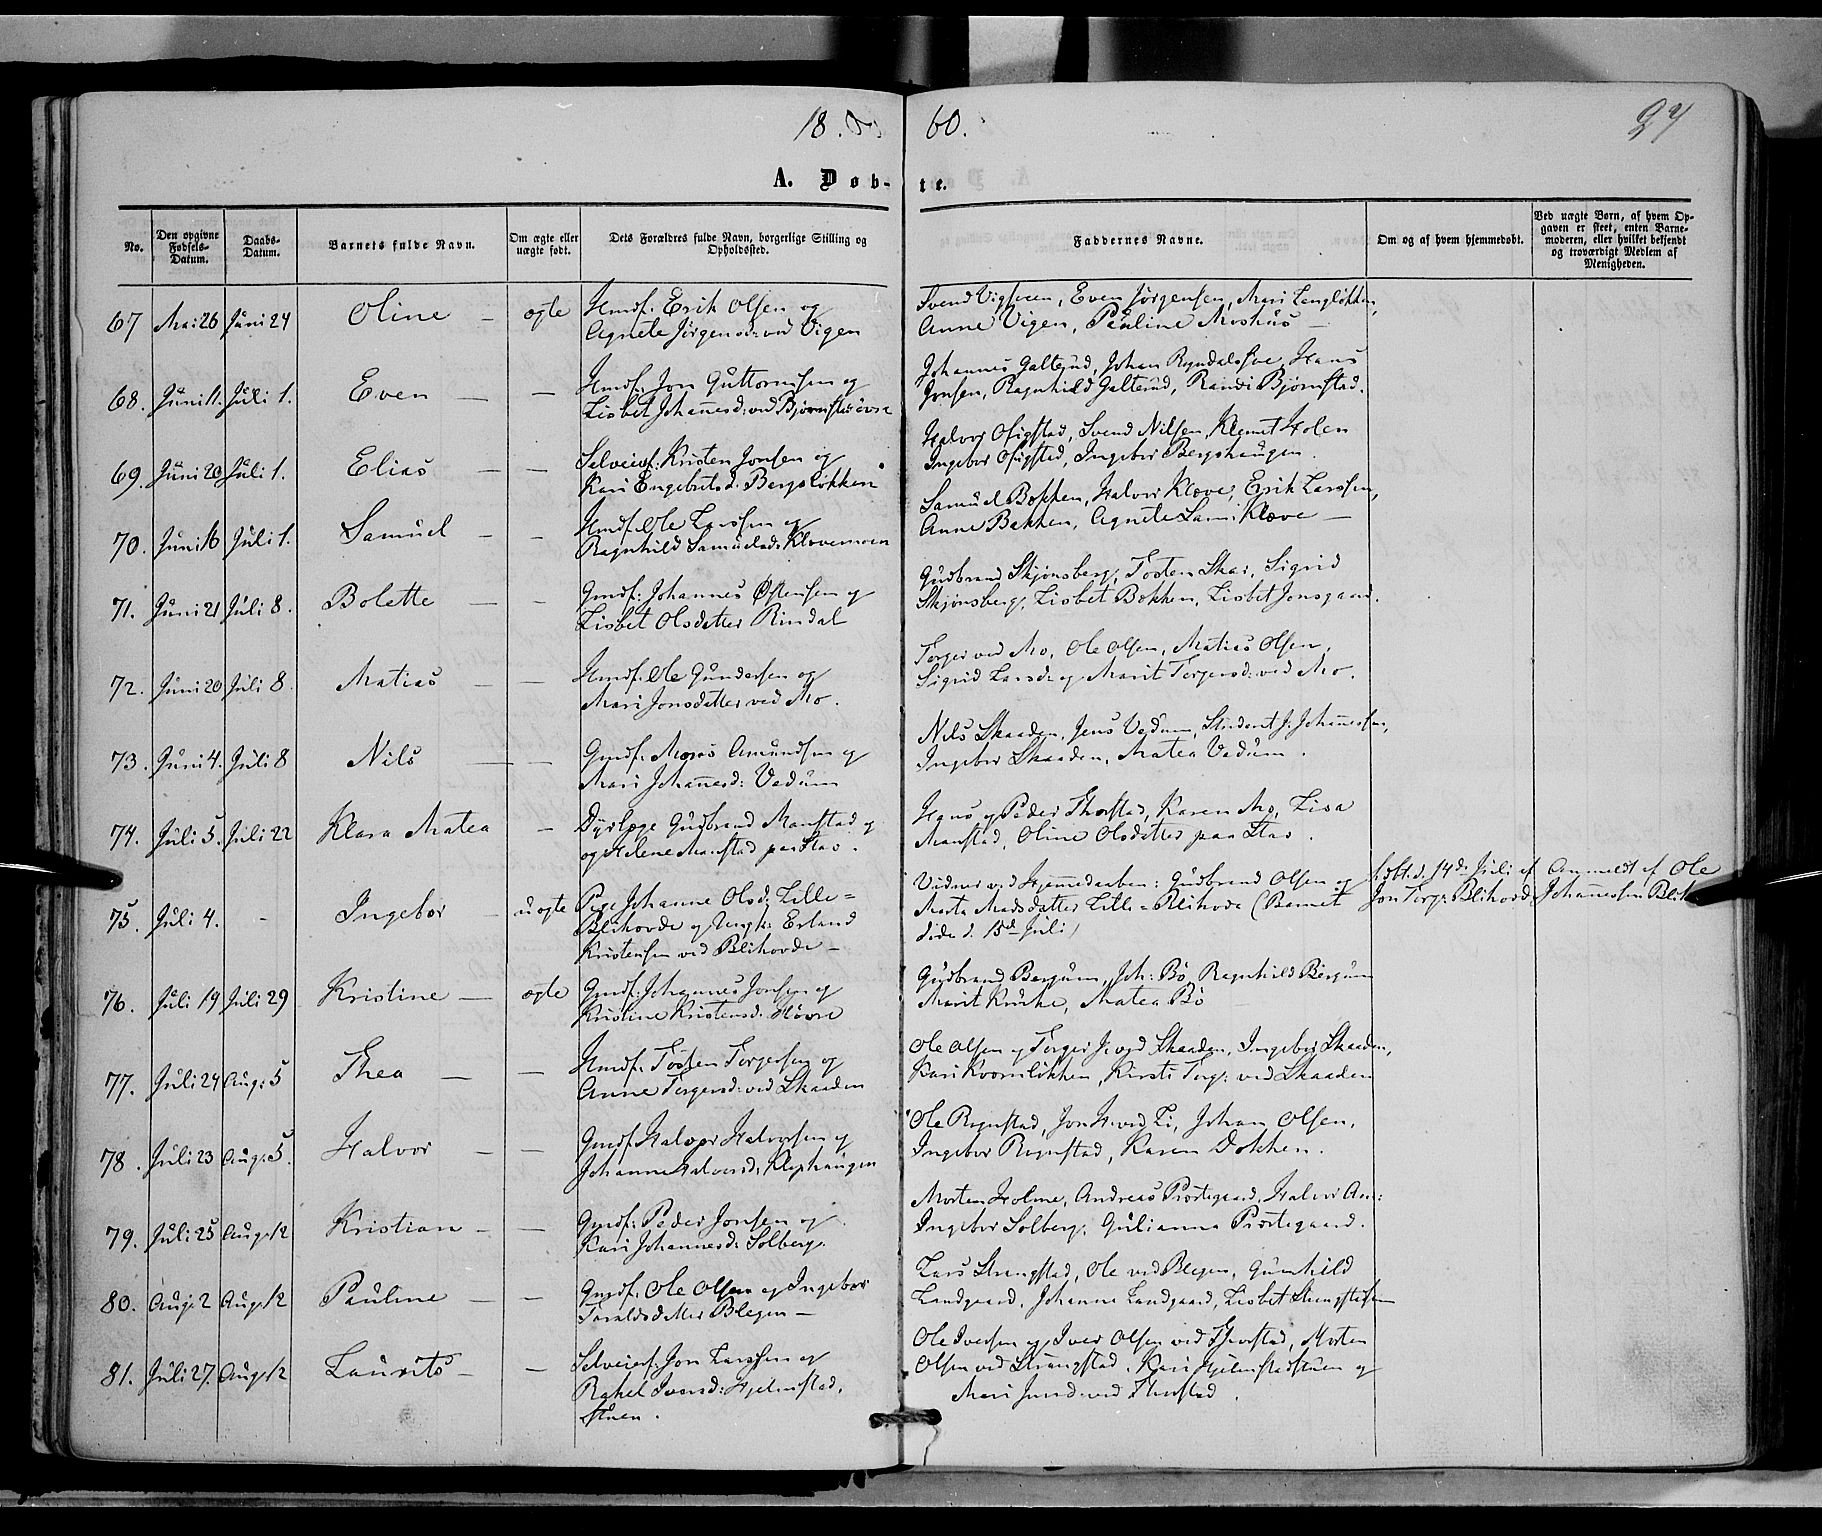 18 60.
27
A. Døb-
te.
No.
Den opgivne Fødsels-Datum.
Daabs-Datum.
Barnets fulde Navn.
Om ægte eller uægte født.
Dets Forældres fulde Navn, borgerlige Stilling og Opholdssted.
Faddernes Navne.
Om og af hvem hjemmedøbt.
Ved uægte Børn, af hvem Opgaven er skeet, enten Barnemoderen, eller hvilket bekjendt og troværdigt Medlem af Menigheden.
67 Mai 26 Juni 24 Oline — ægte
Hmdf. Erik Olsen og
Agnete Jørgensd: ved Vigen
Svend Vigsveen, Even Jørgensen, Mari Lengløkken,
Anne Vigen, Pauline Moshus —
68. Juni 11. Juli 1. Even — —
Hmdf. Jon Guttormsen og
Lisbet Johannesd: ved Bjørnstad øvre
Johannes Galterud, Johan Ryndalssve, Hans
Jonsen, Ragnhild Galterud, Randi Bjørnstad.
69. Juni 20 Juli 1. Elias — —
Selveierf. Kristen Jonsen og
Kari Engebretsd. Bergsløkken
Halvor Ofigstad, Svend Nilsen, Klemet Holen
Ingebor Ofigstad, Ingebor Bergshaugen.
70. Juni 16 Juli 1. Samuel — —
Hmdf. Ole Larssen og
Ragnhild Samuelsd: Klævemoen
Samuel Bakken, Halvor Klæve, Erik Larssen,
Anne Bakken, Agnete Larsd: Klæve —
71. Juni 21 Juli 8. Bolette — —
Gmdf: Johannes Østensen og
Lisbet Olsdatter Rindal
Gudbrand Skjønsberg, Tosten Skar, Sigrid
Skjønsberg, Lisbet Bakken, Lisbet Jonsgaard.
72. Juni 20 Juli 8. Matias — —
Hmdf. Ole Gundersen og
Mari Jonsdatter ved Mo.
Torger ved Mo, Ole Olsen, Matias Olsen,
Sigrid Larsd: og Marit Torgersd: ved Mo.
73. Juni 4. Juli 8 Nils — —
Gmdf. Mons Amundsen og
Mari Johannesd: Vedum
Nils Skaaden, Jens Vedum, Student J. Johannessen,
Ingebor Skaaden, Matea Vedum.
74. Juli 5. Juli 22 Klara Matea —
Dyrlæge Gudbrand Manstad og
og Helene Manstad paa Stav.
Hans og Peder Thorstad, Karen Mo, Lisa
Manstad, Oline Olsdatter paa Stav.
75. Juli 4. - Ingebor — uægte
Pige Johanne Olsd: Lille=
Blihovde og Ungk: Erland
Kristensen ved Blihovde —
Vidner ved Hjemmedaaben: Gudbrand Olsen og
Marta Madsdatter Lille-Blihovde (Barnet
døde d. 15de Juli)
hdbt. d. 14de Juli af
Jon Torg: Blihovde
Anmeldt af Ole
Johannessen Blih
76. Juli 19 Juli 29 Kristine — ægte
Gmdf: Johannes Jonsen og
Kristine Kristensd: Høvre
Gudbrand Bergum, Joh: Bø, Ragnhild Bergum
Marit Kirke, Matea Bø
77. Juli 24 Aug: 5 Thea — —
Hmdf: Tosten Torgersen og
Anne Torgersd: ved Skaaden
Ole Olsen og Torger J: ved Skaaden, Ingebor Skaaden,
Kari Kvernløkken, Kirsti Torg: ved Skaaden
78. Juli 23 Aug: 5. Halvor — —
Gmdf. Halvor Halvorsen og
Johanne Halvorsd: Klephaugen
Ole Rognstad, Jon H: ved Li, Johan Olsen,
Ingebor Rognstad, Karen Dokken.
79. Juli 25 Aug: 12 Kristian — —
Gmdf: Peder Jonsen og
Kari Johannesd: Solberg.
Morten Holme, Andreas Prøstegaard, Halvor Am:
Ingebor Solberg, Gulianna Prøstegaard.
80. Aug: 2 Aug: 12 Pauline — —
Gmdf: Ole Olsen og Ingebor
Toraldsdatter Blegen —
Lars Strangstad, Ole ved Blegen, Gunhild
Landgaard, Johanne Landgaard, Lisbet
81. Juli 27. Aug: 12 Laurits — —
Selveierf: Jon Larssen og
Rakel Iversd: Hjelmstad,
stuen.
Ole Iversen og Iver Olsen ved Thorstad, Morten
Olsen ved Strangstad, Kari Hjelmstadstuen og
Mari ved Thorstad.